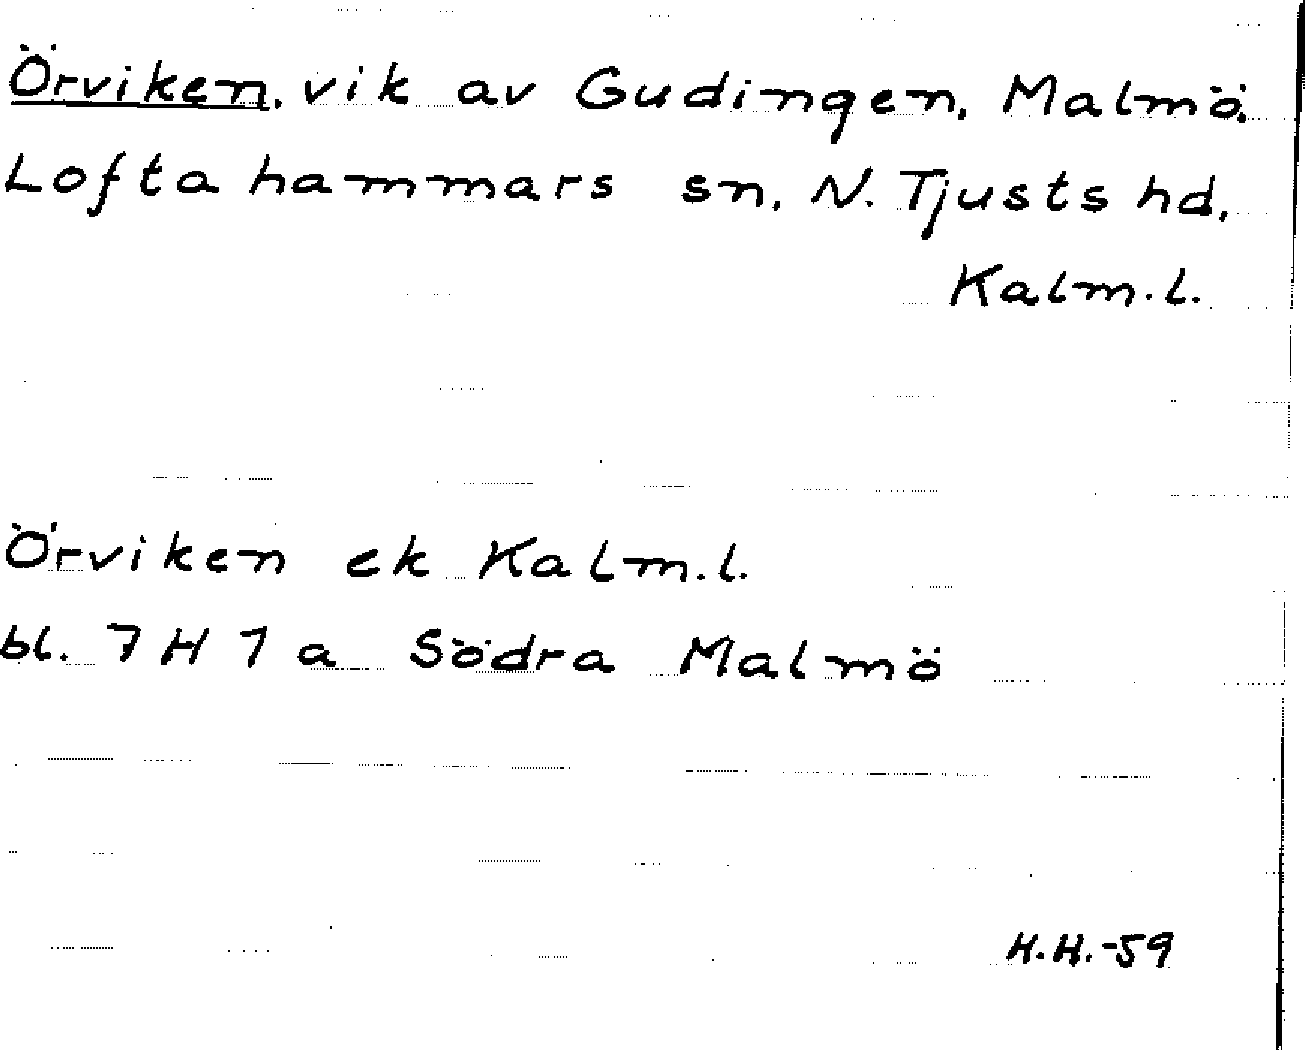 Örviken, vik av Gudingen, Malmö,
Loftahammars sn, N. Tjusts hd,
Kalm.l.
Örviken ek Kalm.l.
bl. 7 H 1 a Södra Malmö
H.H.-59